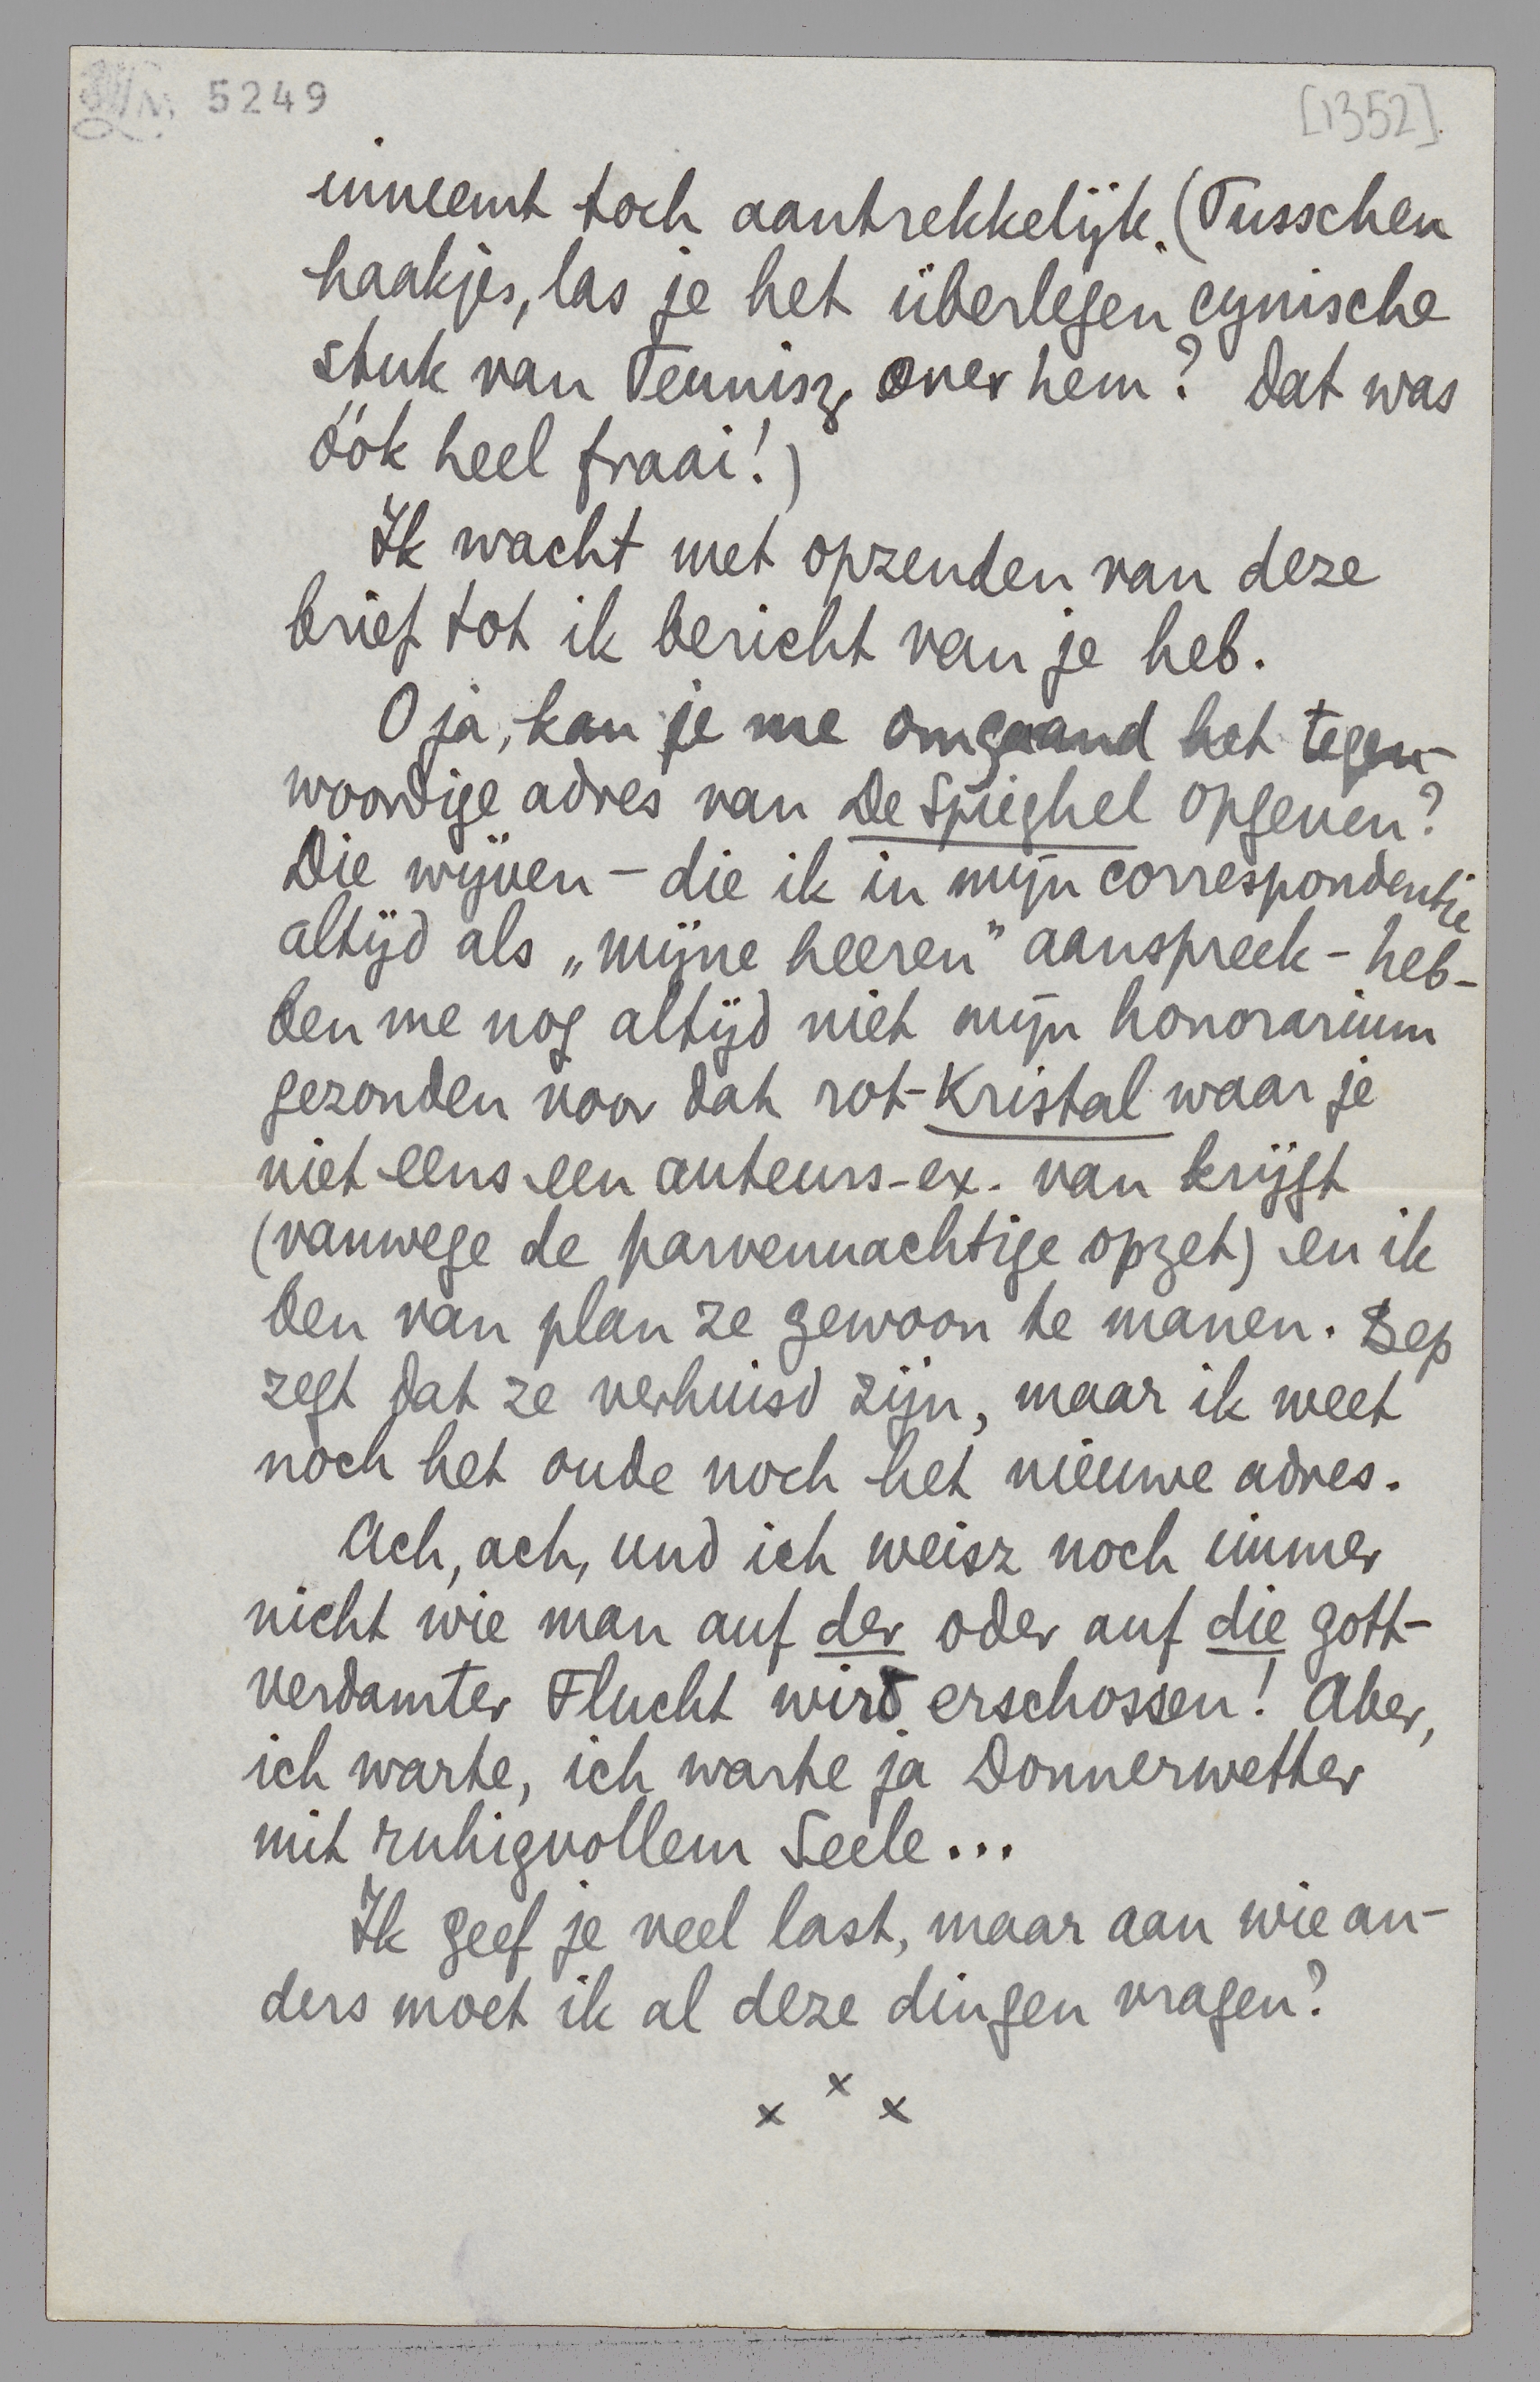 5249
[1352].
inneemt toch aantrekkelijk. (Tusschen
haakjes, las je het überlegen cynische
stuk van Teunisz over hem? Dat was
óók heel fraai!)
Ik wacht met opzenden van deze
brief tot ik bericht van je heb.
O ja, kan je me omgaand het tegen-
woordige adres van De Spieghel opgeven?
Die wijven - die ik in mijn correspondentie
altijd als „mijne heeren" aanspreek - heb-
ben me nog altijd niet mijn honorarium
gezonden voor dat rot-Kristal waar je
niet eens een auteurs-ex. van krijgt
(vanwege de parvenuachtige opzet) en ik
ben van plan ze gewoon te manen. Bep
zegt dat ze verhuisd zijn, maar ik weet
noch het oude noch het nieuwe adres.
Ach, ach, und ich weisz noch immer
nicht wie man auf der oder auf die gott-
verdamter Flucht wird erschossen! Aber,
ich warte, ich warte ja Donnerwetter
mit ruhigvollem Seele...
Ik geef je veel last, maar aan wie an-
ders moet ik al deze dingen vragen?
x x x